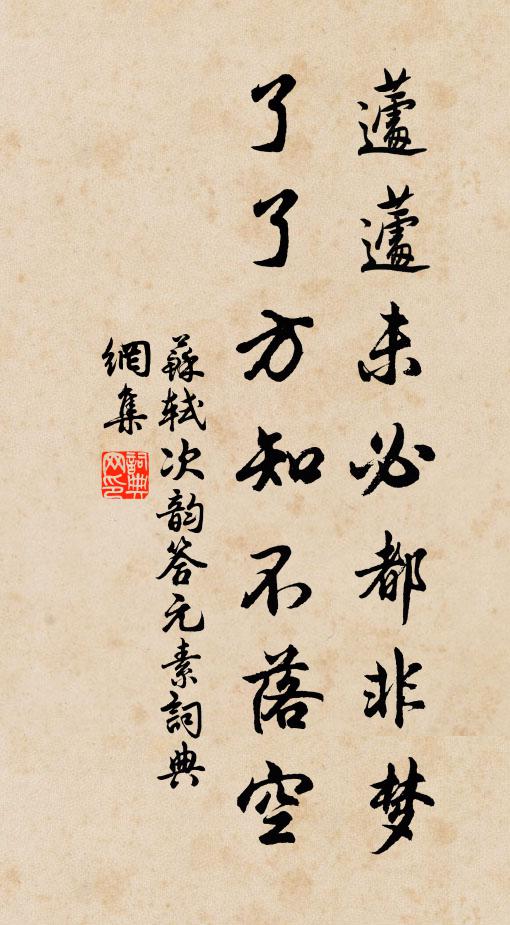 蘧蘧未必都非梦
了了方知不落空
蘇軾次韵答元素詞典
網集
詞典网印